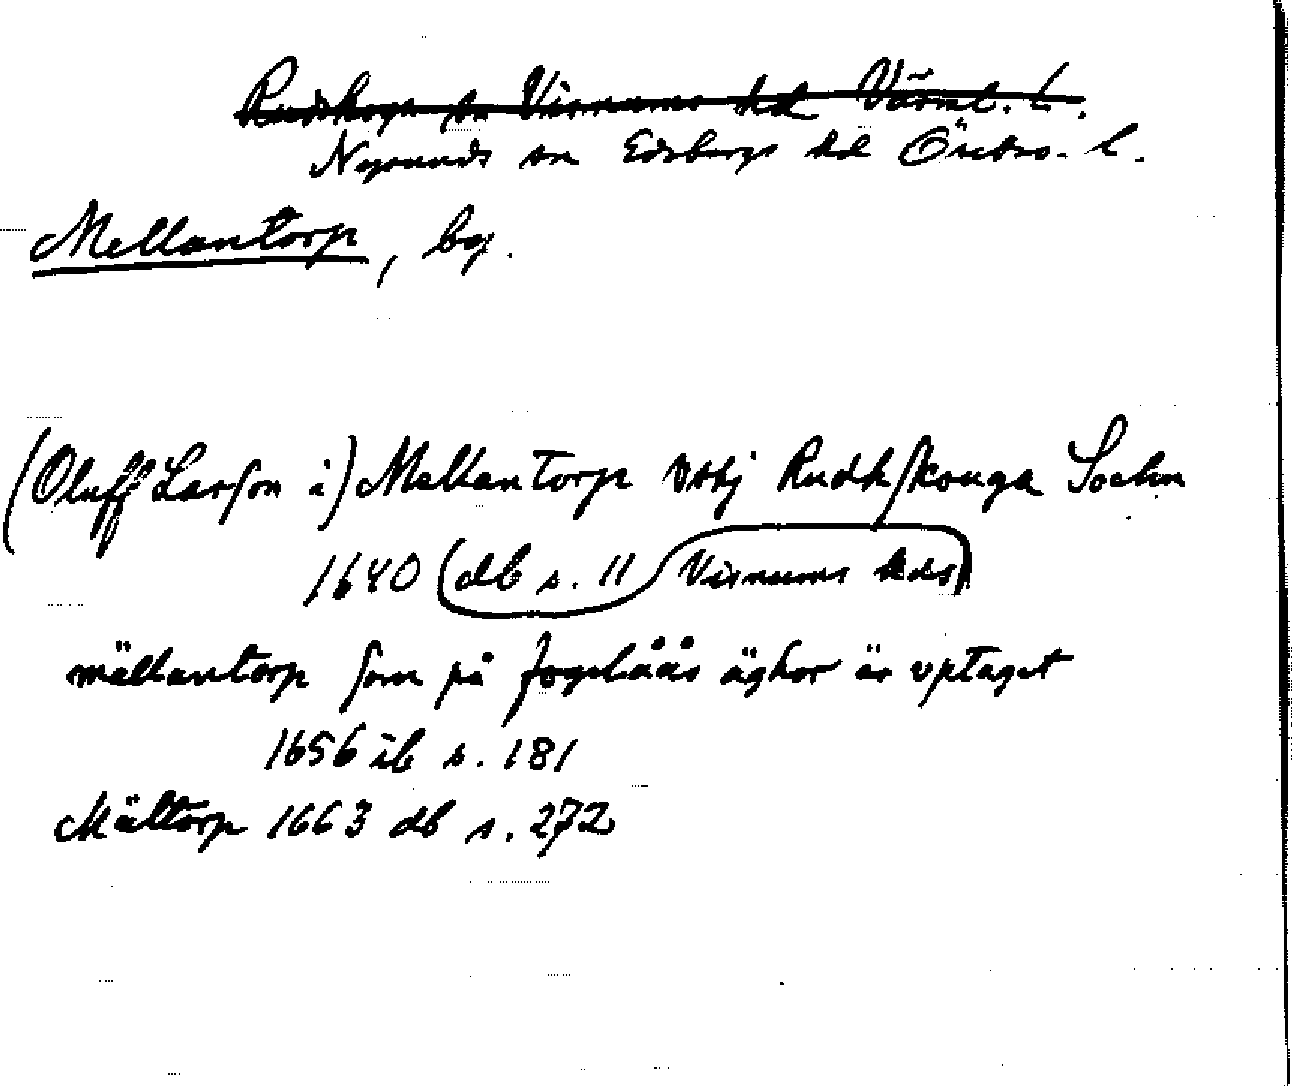 Rudskoga sn Visnums hd Värml. l.
Nysunds sn Edsbergs hd Örebro. l.
Mellantorp, by.
(Oluff Larson i) Mellantorp Rudhskouga Sochn
1640 (db s. 11 Visnums hds)
mällantorp som på fogelåås äghor är vptaget
1656 ib s. 181
Mältorp 1663 db s. 272